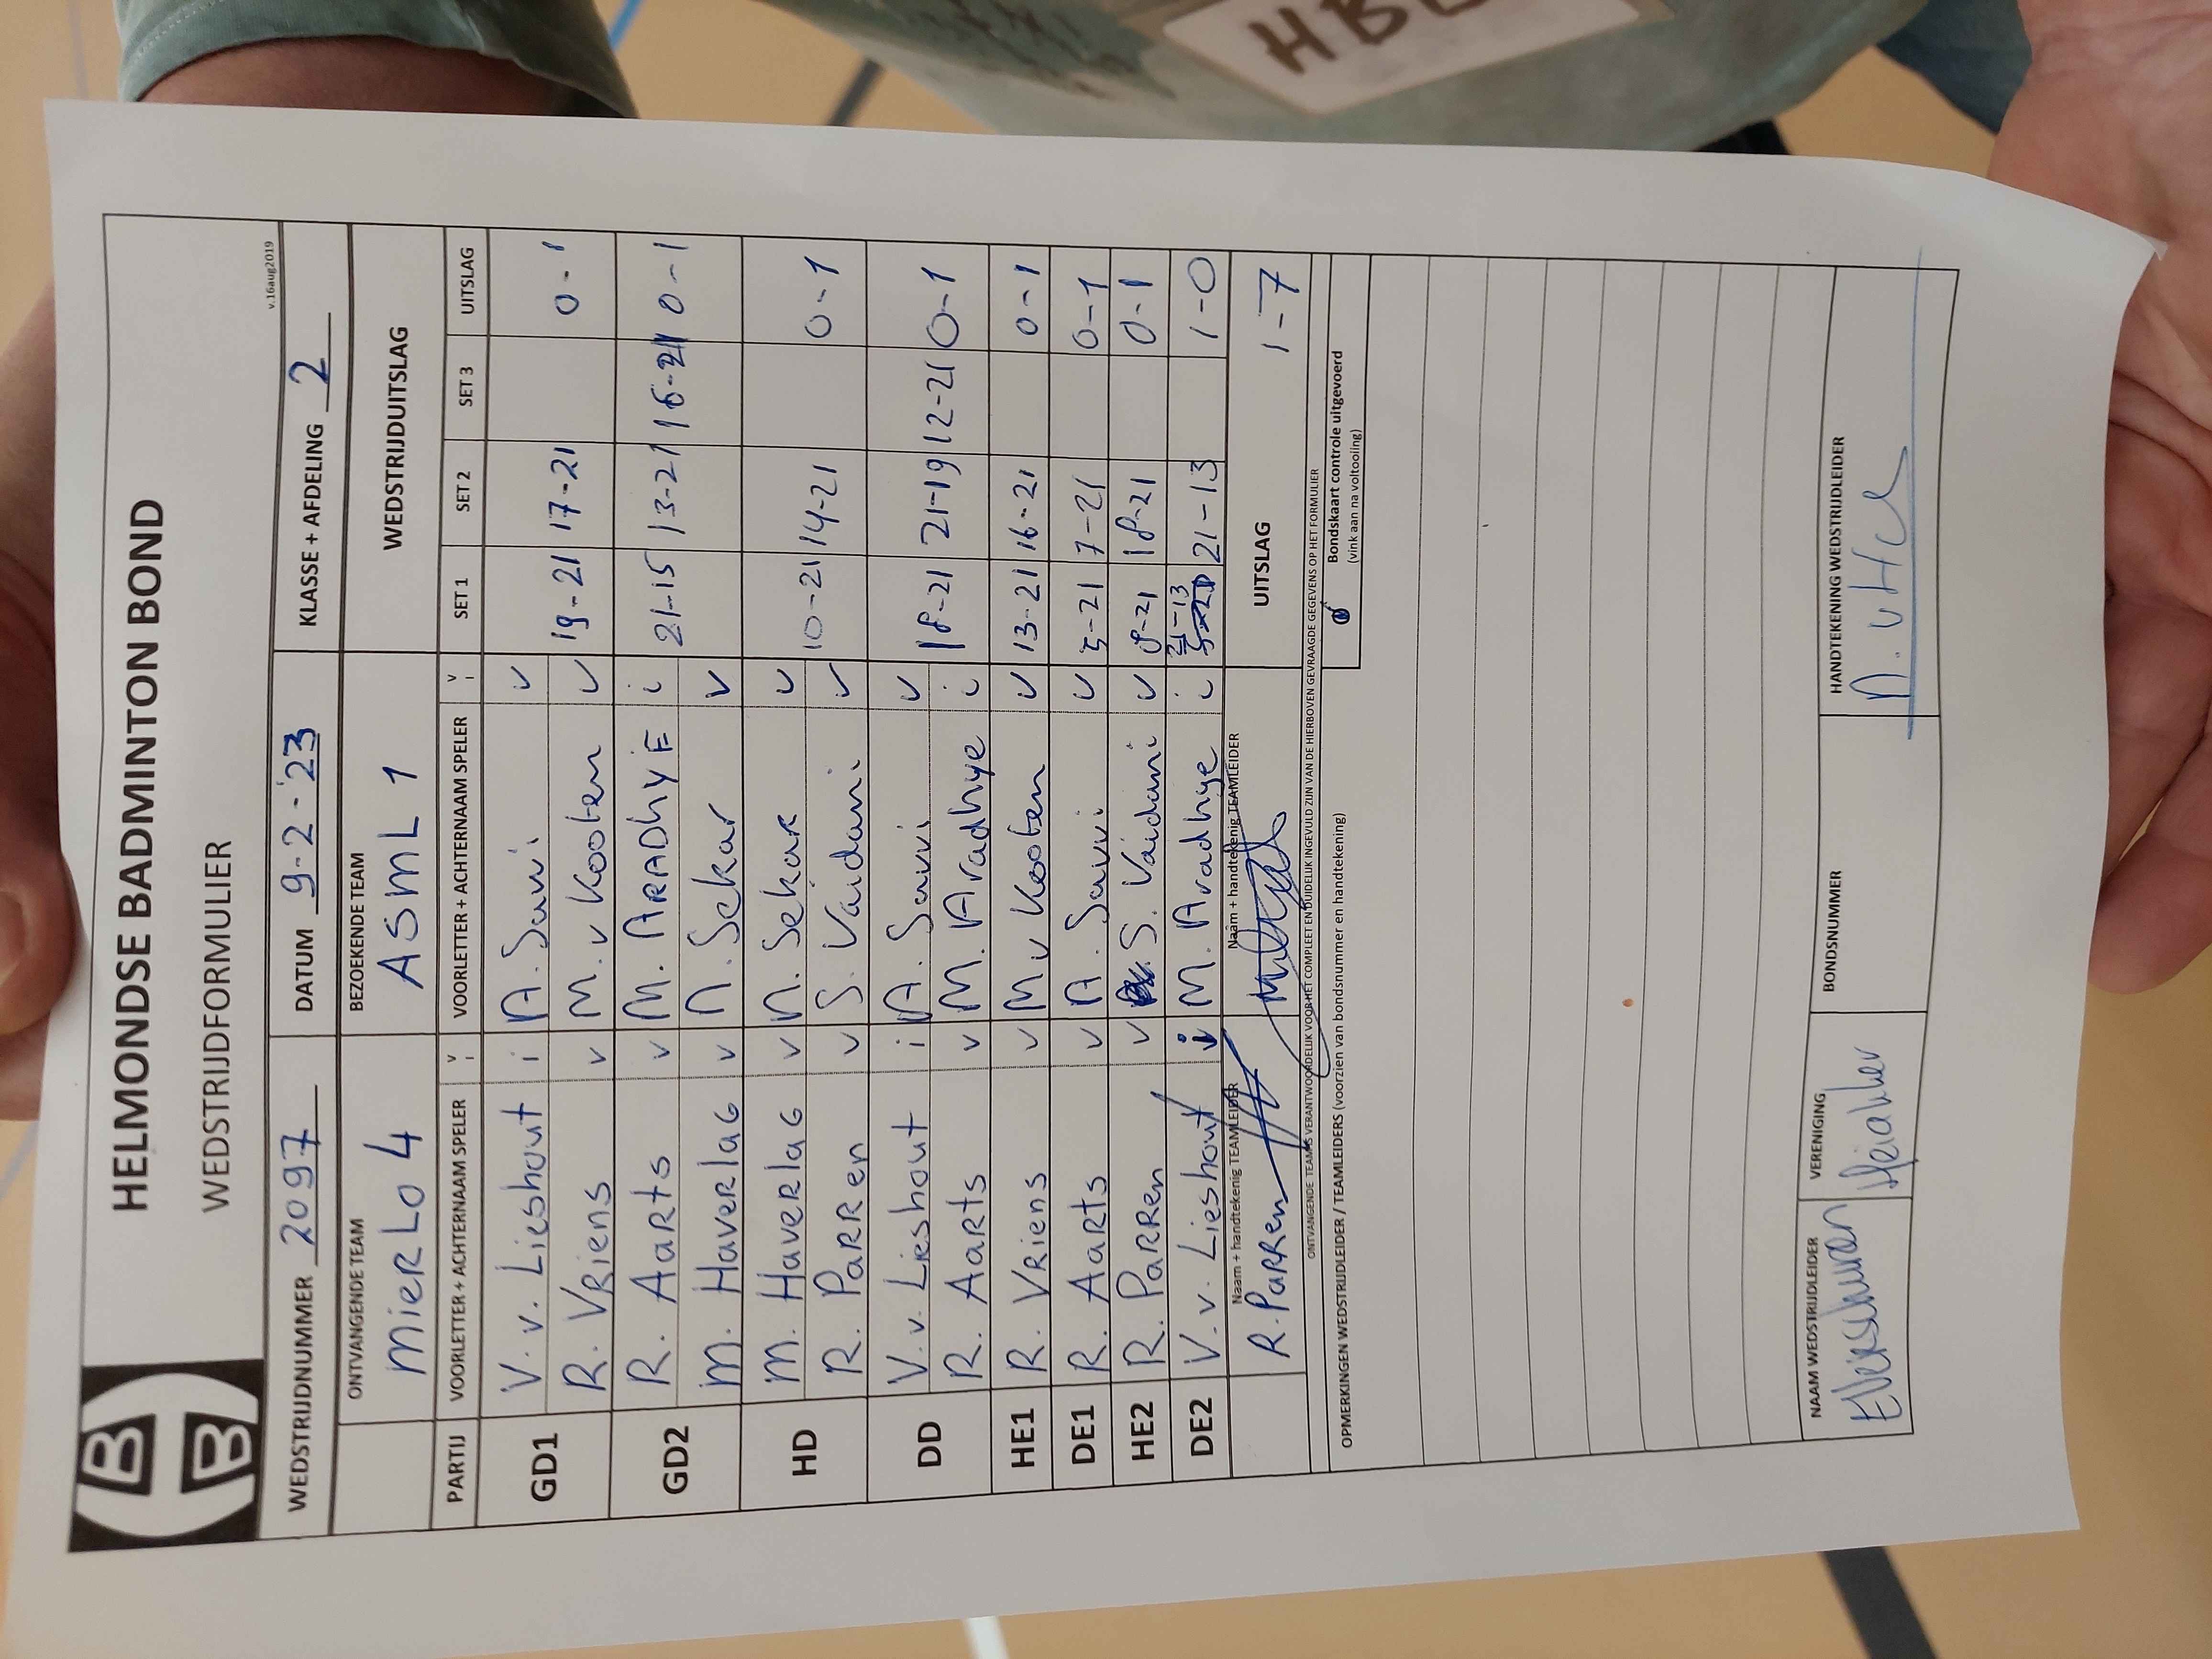 HB
HELMONDSE BADMINTON BOND
WEDSTRIJDFORMULIER
v.16aug2019
WEDSTRIJDNUMMER 2097 DATUM 9-2-'23 KLASSE + AFDELING 2
ONTVANGENDE TEAM BEZOEKENDE TEAM WEDSTRIJDUITSLAG
MierLo 4 ASML 1
PARTIJ VOORLETTER + ACHTERNAAM SPELER V I VOORLETTER + ACHTERNAAM SPELER V I SET 1 SET 2 SET 3 UITSLAG
GD1 V. v. Lieshout i A. Savvi v
R. VRiens v M. v Kooten v 19-21 17-21 0-1
GD2 R. AaRts v M. ARADhyE i 21-15 13-21 16-21 0-1
M. HaveRlaG v N. Sekar v
HD M. HaveRlaG v N. Sekar v
R. PaRRen v S. Vaidani v 10-21 14-21 0-1
DD V. v. Lieshout i A. Savvi v
R. AaRts v M. Aradhye i 18-21 21-19 12-21 0-1
HE1 R. VRiens v M v Kooten v 13-21 16-21 0-1
DE1 R. AaRts v A. Savvi v 5-21 7-21 0-1
HE2 R. PaRRen v S. Vaidani v 8-21 18-21 0-1
DE2 V. v. Lieshout i M. Aradhye i 21-13 21-13 1-0
Naam + handtekenig TEAMLEIDER Naam + handtekenig TEAMLEIDER UITSLAG 1-7
R. PaRRen
ONTVANGENDE TEAMS VERANTWOORDELIJK VOOR HET COMPLEET EN DUIDELIJK INGEVULD ZIJN VAN DE HIERBOVEN GEVRAAGDE GEGEVENS OP HET FORMULIER
OPMERKINGEN WEDSTRIJDLEIDER / TEAMLEIDERS (voorzien van bondsnummer en handtekening) Bondskaart controle uitgevoerd
(vink aan na voltooiing)
NAAM WEDSTRIJDLEIDER VERENIGING BONDSNUMMER HANDTEKENING WEDSTRIJDLEIDER